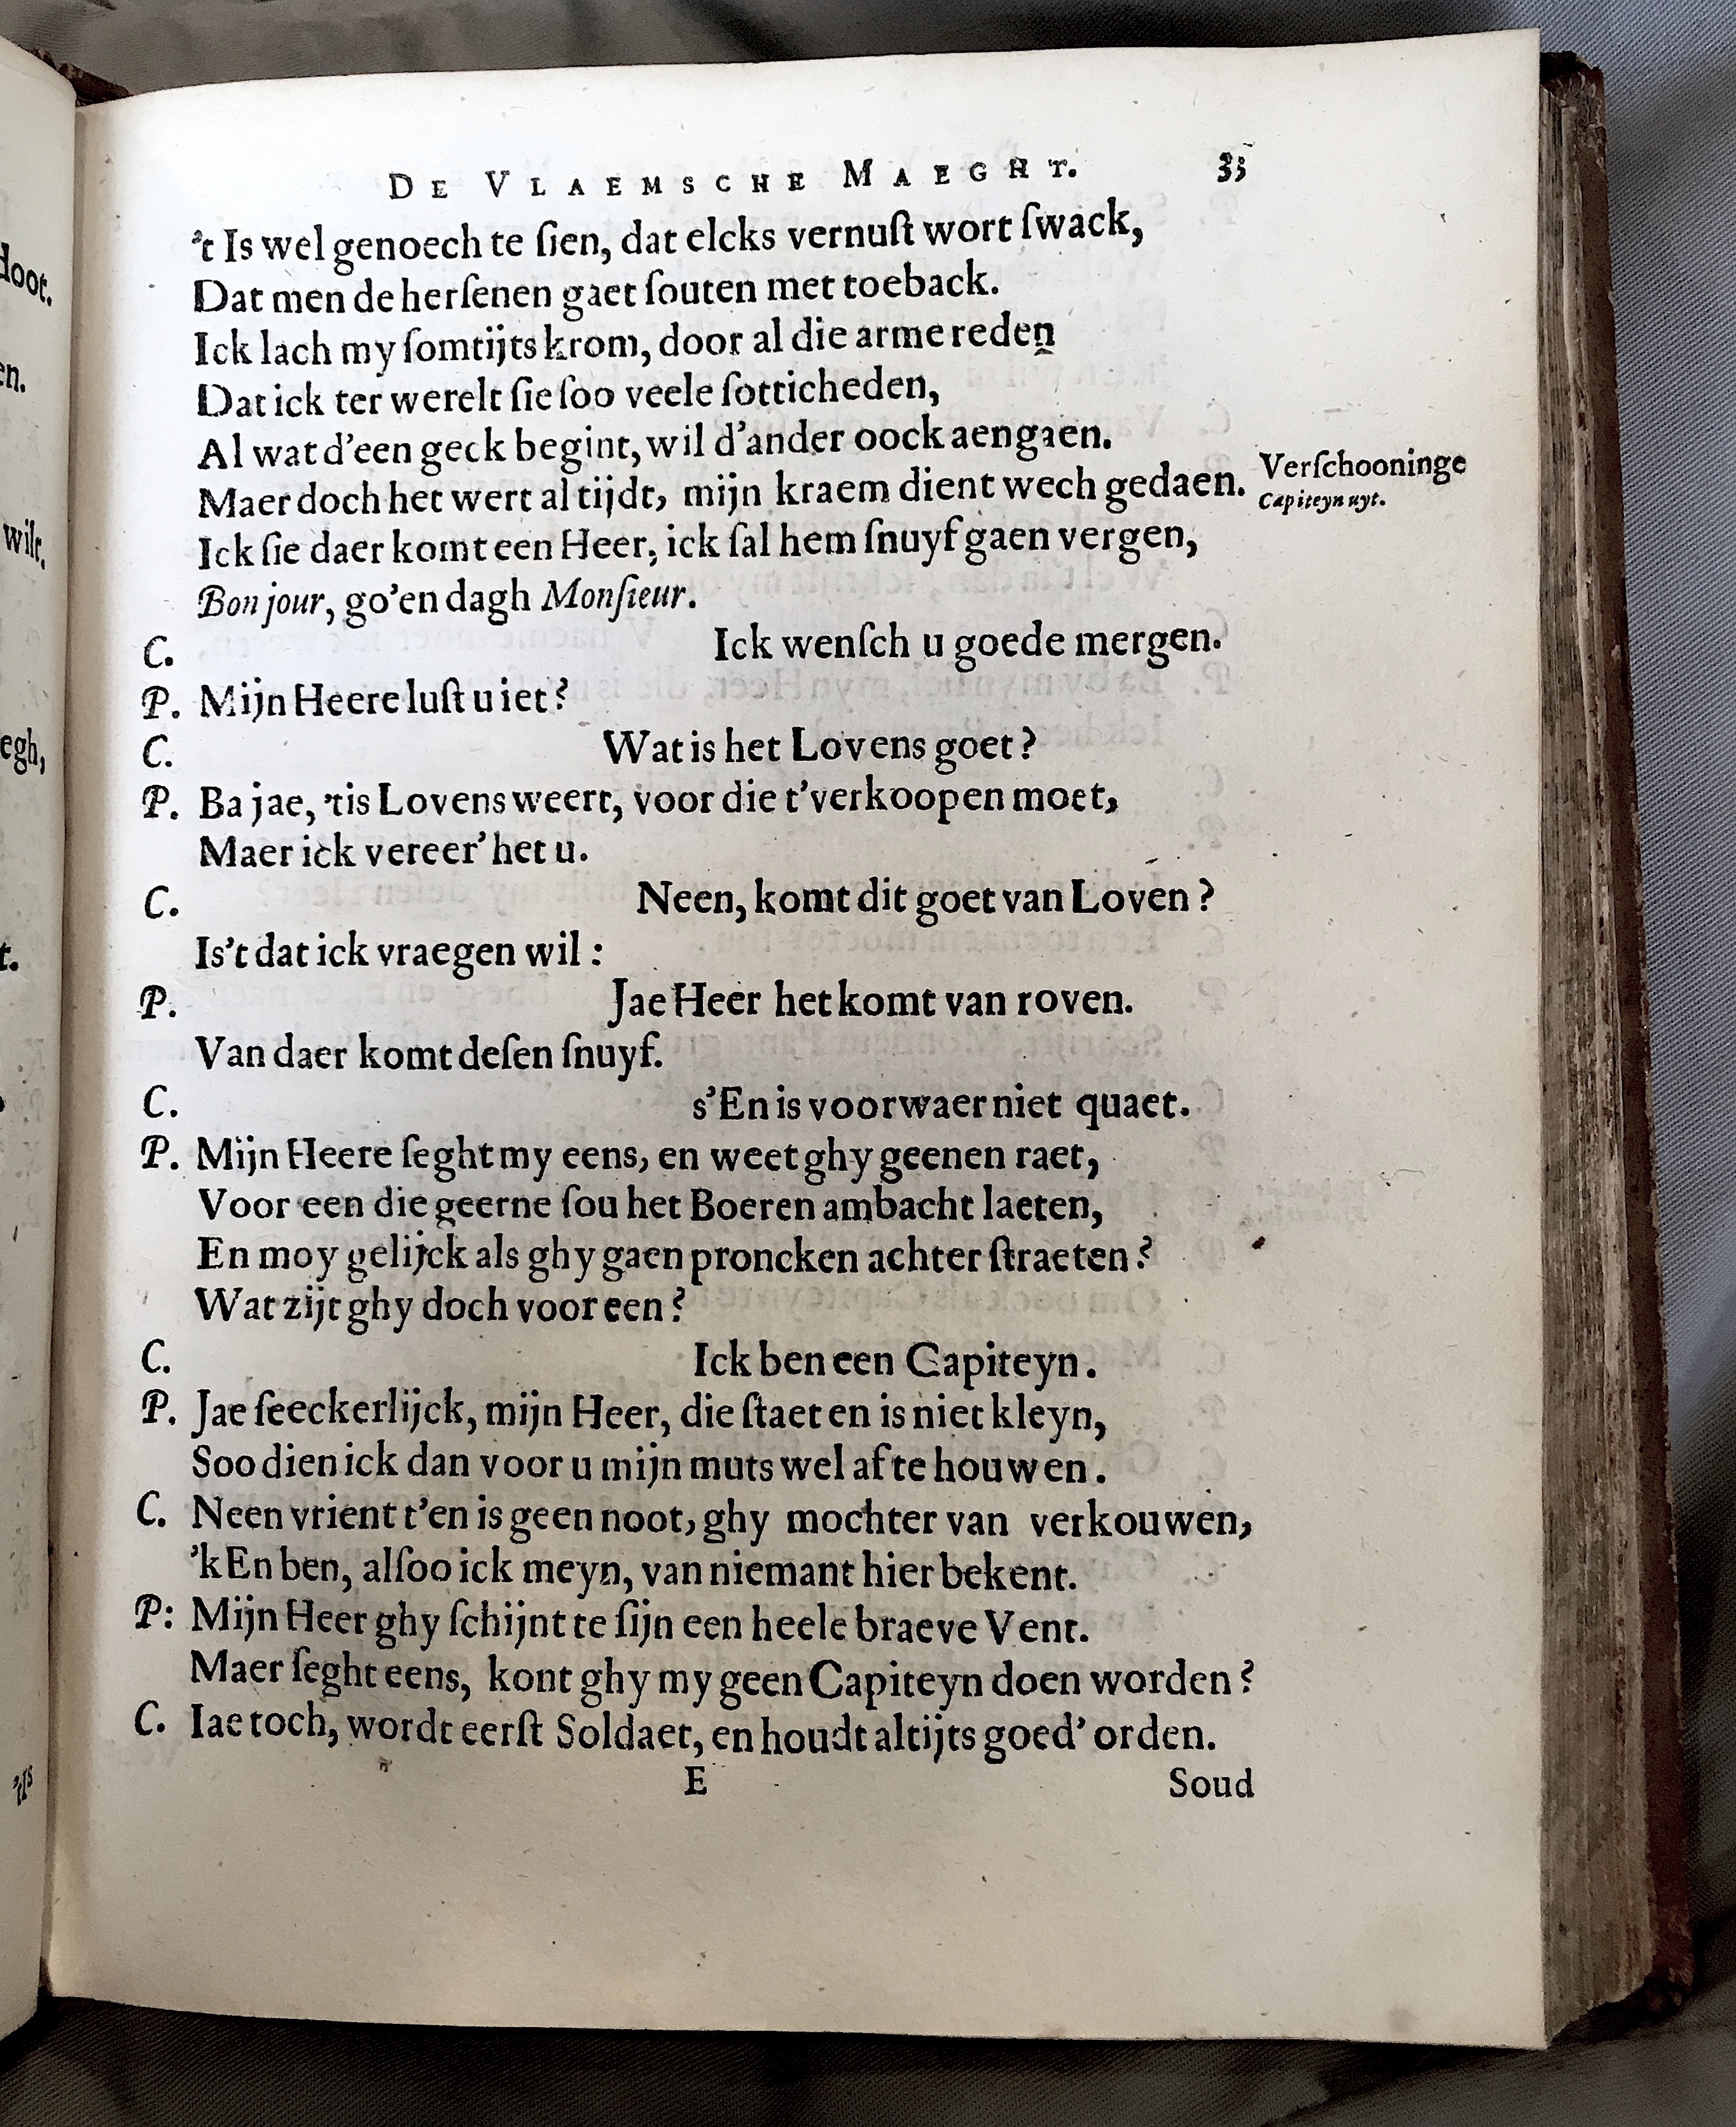 De Vlaemsche Maeght. 33
't Is wel genoech te ſien, dat elcks vernuſt wort ſwack,
Dat men de herſenen gaet ſouten met toeback.
Ick lach my ſomtijts krom, door al die arme reden
Dat ick ter werelt ſie ſoo veele ſotticheden,
Al wat d'een geck begint, wil d'ander oock aengaen.
Maer doch het wert al tijdt, mijn kraem dient wech gedaen. Verſchooninge
Capiteyn uyt.
Ick ſie daer komt een Heer, ick ſal hem ſnuyf gaen vergen,
Bon jour, go'en dagh Monſieur.
C. Ick wenſch u goede mergen.
P. Mijn Heere luſt u iet?
C. Wat is het Lovens goet?
P. Ba jae, 'tis Lovens weert, voor die t'verkoopen moet,
Maer ick vereer' het u.
C. Neen, komt dit goet van Loven?
Is't dat ick vraegen wil:
P. Jae Heer het komt van roven.
Van daer komt deſen ſnuyf.
C. s'En is voorwaer niet quaet.
P. Mijn Heere ſeght my eens, en weet ghy geenen raet,
Voor een die geerne ſou het Boeren ambacht laeten,
En moy gelijck als ghy gaen proncken achter ſtraeten?
Wat zijt ghy doch voor een?
C. Ick ben een Capiteyn.
P. Jae ſeeckerlijck, mijn Heer, die ſtaet en is niet kleyn,
Soo dien ick dan voor u mijn muts wel af te houwen.
C. Neen vrient t'en is geen noot, ghy mochter van verkouwen,
'k En ben, alſoo ick meyn, van niemant hier bekent.
P: Mijn Heer ghy ſchijnt te ſijn een heele braeve Vent.
Maer ſeght eens, kont ghy my geen Capiteyn doen worden?
C. Iae toch, wordt eerſt Soldaet, en houdt altijts goed' orden.
E Soud